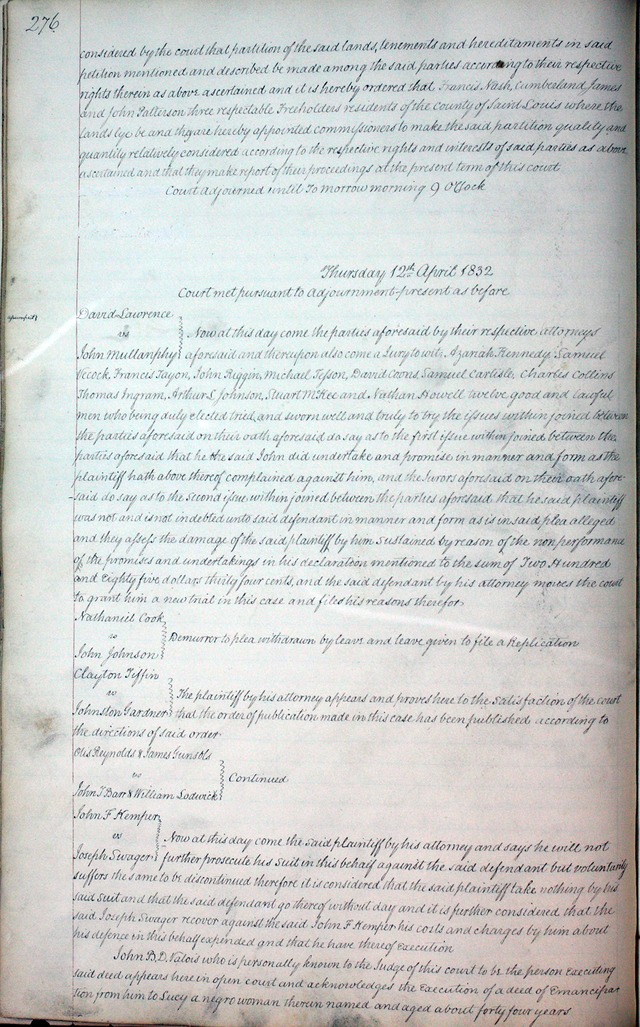 276
considered by the court that partition of the said lands, tenements and hereditaments in said
petition mentioned and described be made among the said parties according to their respective
rights therein as above ascertained and it is hereby ordered that Francis Nash, Cumberland James
and John Patterson three respectable Freeholders residents of the County of Saint Louis where the
lands lye be and they are hereby appointed commissioners to make the said partition quality and
quantity relatively considered according to the respective rights and interests of said parties as above
ascertained and that they make report of their proceedings at the present term of this court
Court adjourned until To morrow morning 9 O'Clock
Thursday 12th April 1832
Court met pursuant to adjournment - present as before
David Lawrence
vs
Now at this day come the parties aforesaid by their respective attorneys
John Mullanphy aforesaid and thereupon also come a Jury to wit, Azariah Kennedy Samuel
Francis Tayon, John Riggin, Michael Tesson, David Coons, Samuel Carlisle, Charles Collins
Thomas Ingram, Arthur L Johnson, Stuart McKee and Nathan Howell twelve good and lawful
men who being duly elected tried, and sworn well and truly to try the issues within joined between
the parties aforesaid on their oath aforesaid do say as to the first issue within joined between the
parties aforesaid that he the said John did undertake and promise in manner and form as the
plaintiff hath above thereof complained against him, and the Jurors aforesaid on their oath afore-
said do say as to the second issue within joined between the parties aforesaid that he said plaintiff
was not and is not indebted unto said defendant in manner and form as is in said plea alleged
and they assess the damage of the said plaintiff by him sustained by reason of the non performance
of the promises and undertakings in his declaration mentioned to the sum of Two Hundred
and Eighty five dollars thirty four cents, and the said defendant by his attorney moves the court
to grant him a new trial in this case and files his reasons therefor
Nathaniel Cook
vs
Demurrer to plea withdrawn by leave and leave given to file a Replication
John Johnson
Clayton Tiffin
vs
The plaintiff by his attorney appears and proves here to the satisfaction of the court
Johnston Gardner that the order of publication made in this case has been published according to
the directions of said order
Otis Reynolds & James Gunsols
vs
Continued
John T Barr & William Lodwick
John F Kemper
vs
Now at this day come the said plaintiff by his attorney and says he will not
Joseph Swager further prosecute his suit in this behalf against the said defendant but voluntarily
suffers the same to be discontinued therefore it is considered that the said plaintiff take nothing by his
said suit and that the said defendant go thereof without day and it is further considered that the
said Joseph Swager recover against the said John F Kemper his costs and charges by him about
his defence in this behalf expended and that he have thereof Execution
John B. D. Valois who is personally known to the Judge of this court to be the person Executing
said deed appears here in open court and acknowledges the Execution of a deed of Emancipa
tion from him to Lucy a negro woman therein named and aged about forty four years